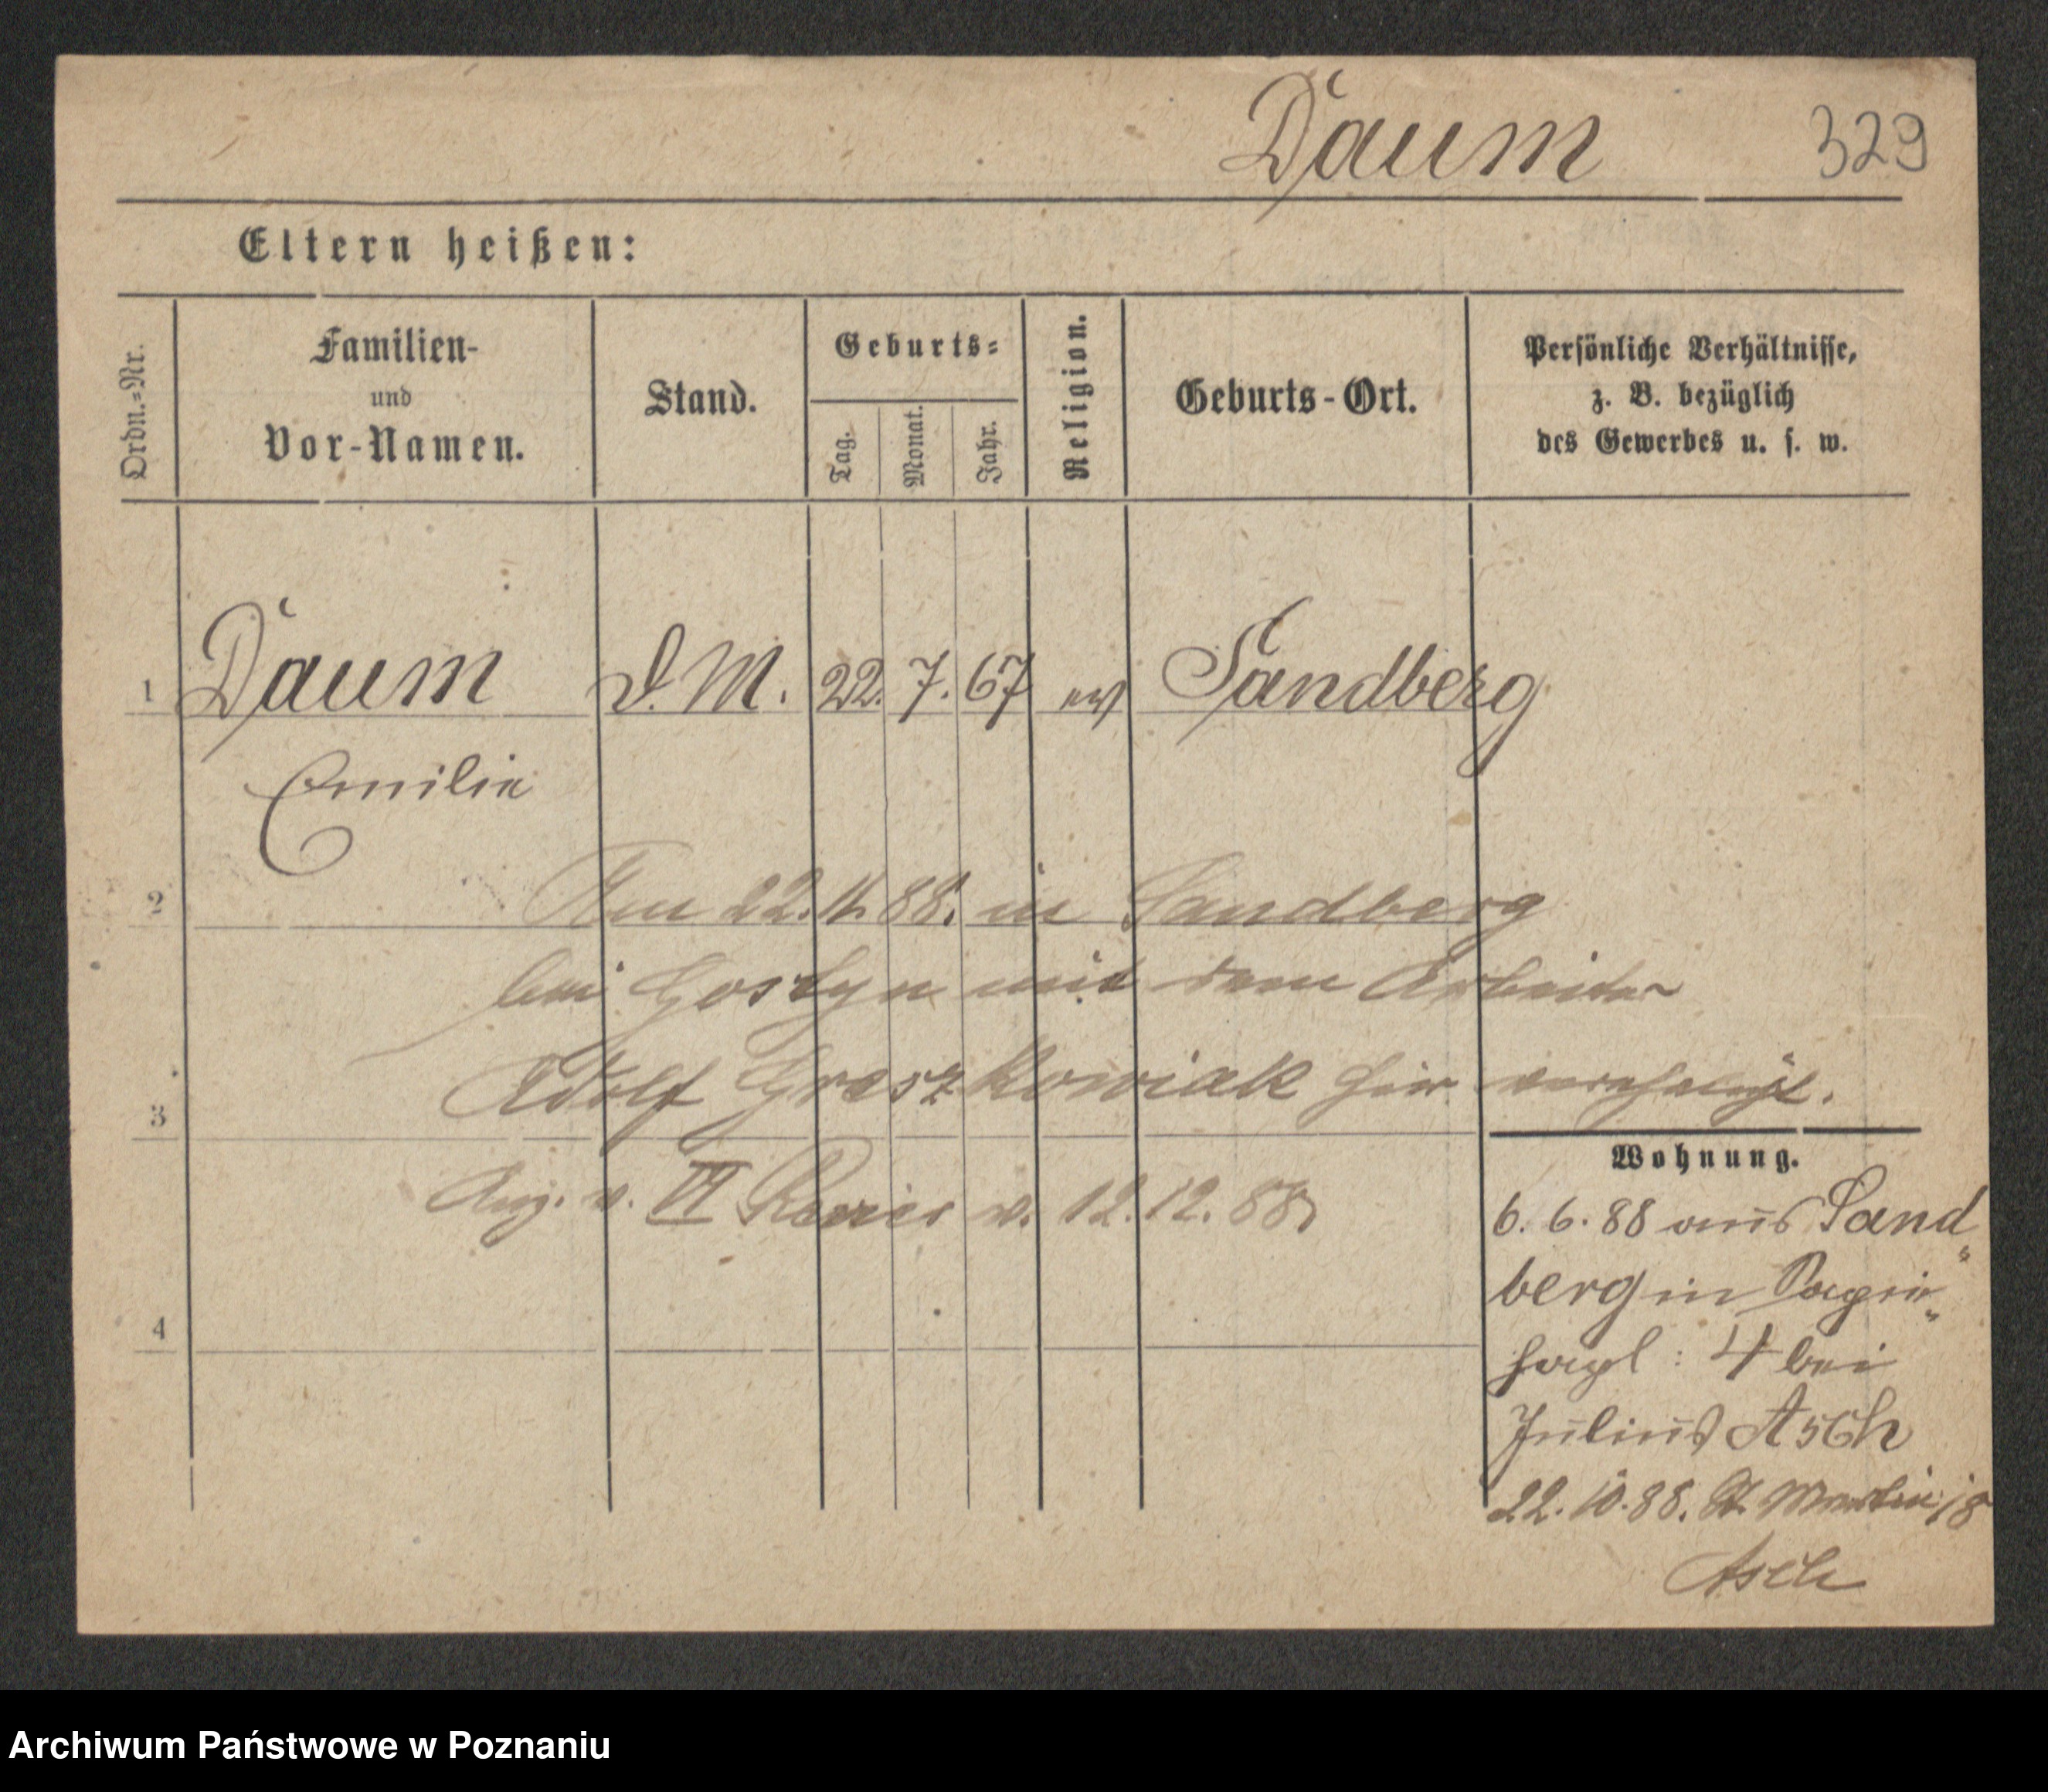 Daum 329
Eltern heißen:
Ordn.-Nr.
Familien-
und
Vor-Namen.
Stand.
Geburts=
Tag.
Monat.
Jahr.
Religion.
Geburts-Ort.
Persönliche Verhältnisse,
z. B. bezüglich
des Gewerbes u. s. w.
1 Daum D.M. 22. 7. 67 ev Sandberg
Emilie
2 Am 22.11.88. in Sandberg
bei Gostyn mit dem Arbeiter
Adolf Greszkowiak hier verehelicht.
3
Anz. v. VI Revier v. 12.12.88
4
Wohnung.
6. 6. 88 aus Sand„
berg in
4 bei
Julius Asch
22.10.88. St. Martin 18
Asch
Archiwum Państwowe w Poznaniu